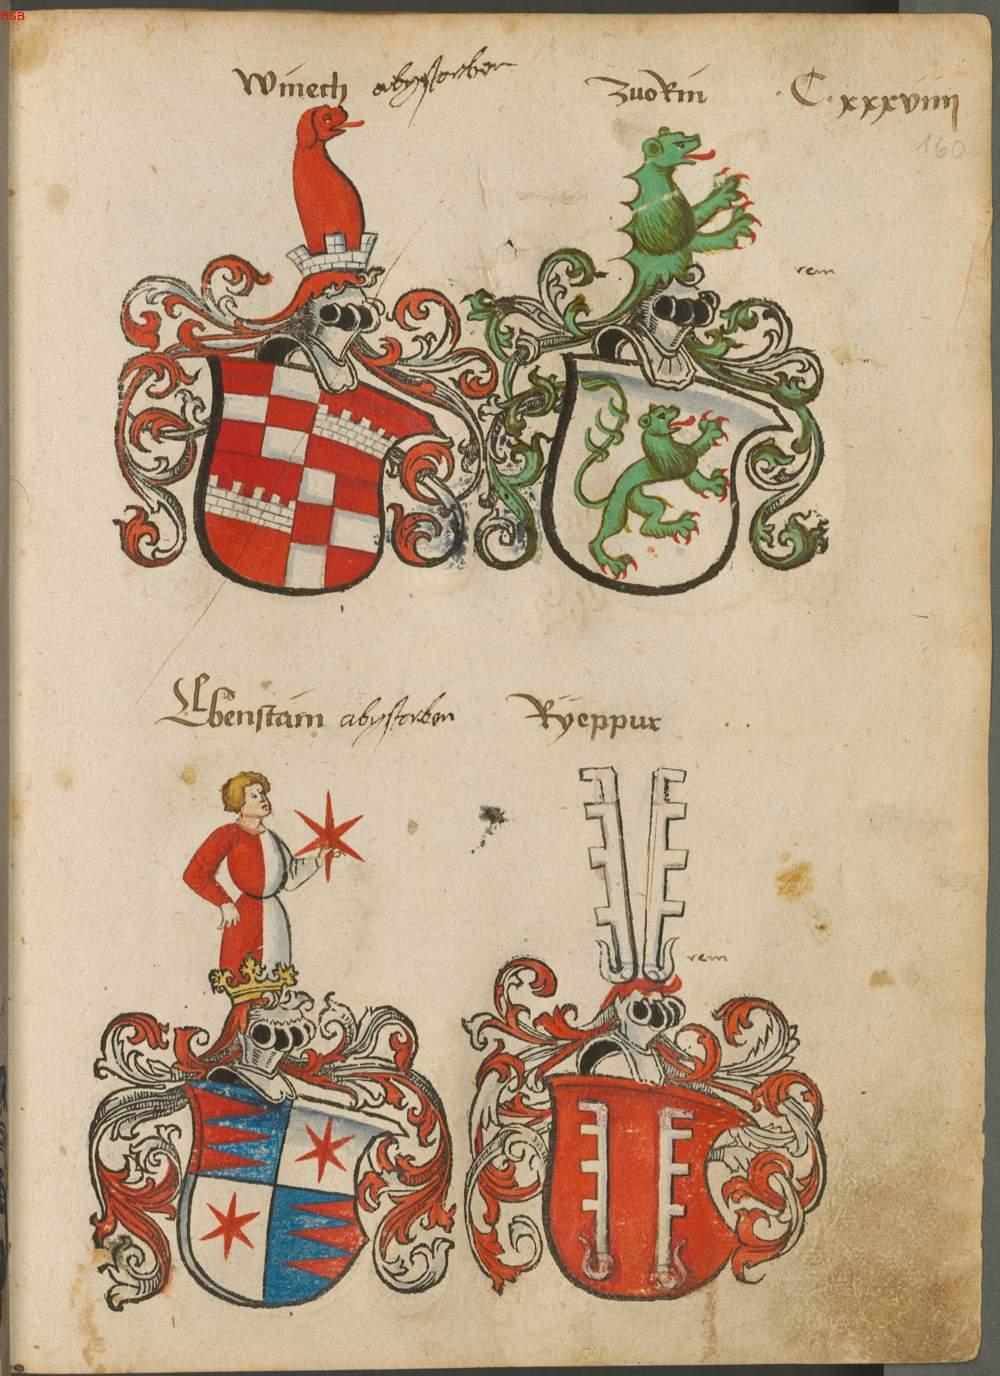 BSB
Winech abgstorben
Zuo Rin
C · xxxviiij
160
rein
Ebenstain abgstorben
Ryeppur
rein